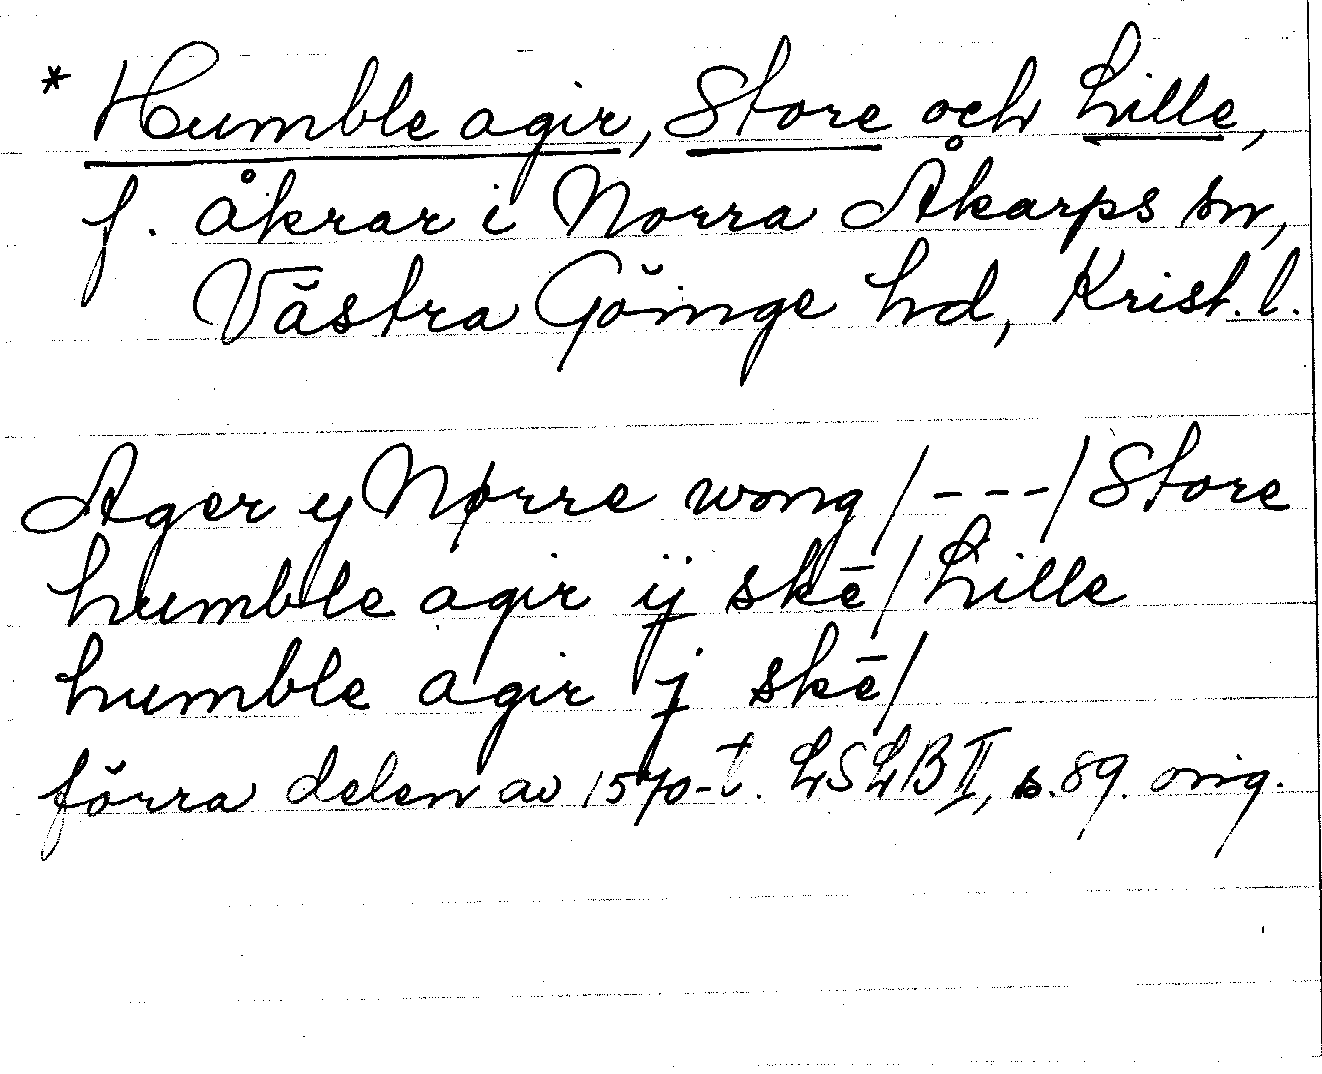 * Humble agir, Store och Lille,
f. åkrar i Norra Åkarps sn,
Västra Göinge hd, Krist. l.
Ager y Nørre wong / - - - / Store
humble agir ij skē / Lille
humble agir j skē /
förra delen av 1570-t. LSLB II, s. 89. orig.